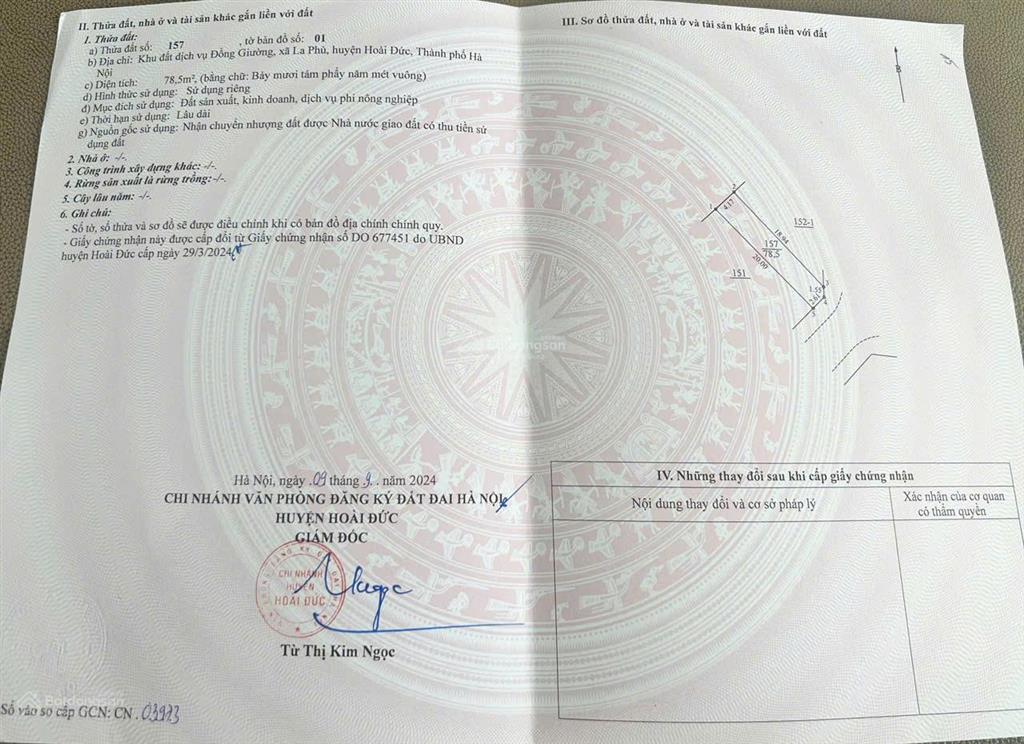 II. Thửa đất, nhà ở và tài sản khác gắn liền với đất
1. Thửa đất:
a) Thửa đất số: 157 , tờ bản đồ số: 01
b) Địa chỉ: Khu đất dịch vụ Đồng Giường, xã La Phù, huyện Hoài Đức, Thành phố Hà
Nội
c) Diện tích: 78,5m², (bằng chữ: Bảy mươi tám phẩy năm mét vuông)
d) Hình thức sử dụng: Sử dụng riêng
đ) Mục đích sử dụng: Đất sản xuất, kinh doanh, dịch vụ phi nông nghiệp
e) Thời hạn sử dụng: Lâu dài
g) Nguồn gốc sử dụng: Nhận chuyển nhượng đất được Nhà nước giao đất có thu tiền sử
dụng đất
2. Nhà ở: -/-.
3. Công trình xây dựng khác: -/-.
4. Rừng sản xuất là rừng trồng:-/-.
5. Cây lâu năm: -/-.
6. Ghi chú:
- Số tờ, số thửa và sơ đồ sẽ được điều chỉnh khi có bản đồ địa chính chính quy.
- Giấy chứng nhận này được cấp đổi từ Giấy chứng nhận số DO 677451 do UBND
huyện Hoài Đức cấp ngày 29/3/2024
Hà Nội, ngày .09 tháng .9. . năm 2024
CHI NHÁNH VĂN PHÒNG ĐĂNG KÝ ĐẤT ĐAI HÀ NỘI
HUYỆN HOÀI ĐỨC
GIÁM ĐỐC
CHI NHÁNH
HUYỆN
HOÀI ĐỨC
Ngọc
Từ Thị Kim Ngọc
Số vào sổ cấp GCN: CN .03973
III. Sơ đồ thửa đất, nhà ở và tài sản khác gắn liền với đất
B
1
2
4.17
152-1
18.84
157
78.5
20.00
151
1.55
3
2.61
4
5
IV. Những thay đổi sau khi cấp giấy chứng nhận
Nội dung thay đổi và cơ sở pháp lý
Xác nhận của cơ quan
có thẩm quyền
Batdongsan
Batdongsan